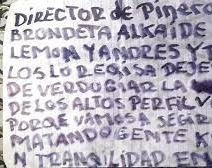 DIRECTOR de Pinesc
BRONDETA ALKAIDE
LEMON Y ANDRES Y T
LOS LO REQISA DEJE
DE VERDUGIAR LA
DE LOS ALTOS PERFIL
PORQE VAMOS A SEGIR
MATANDO GENTE K
N TRANQILIDAD EN